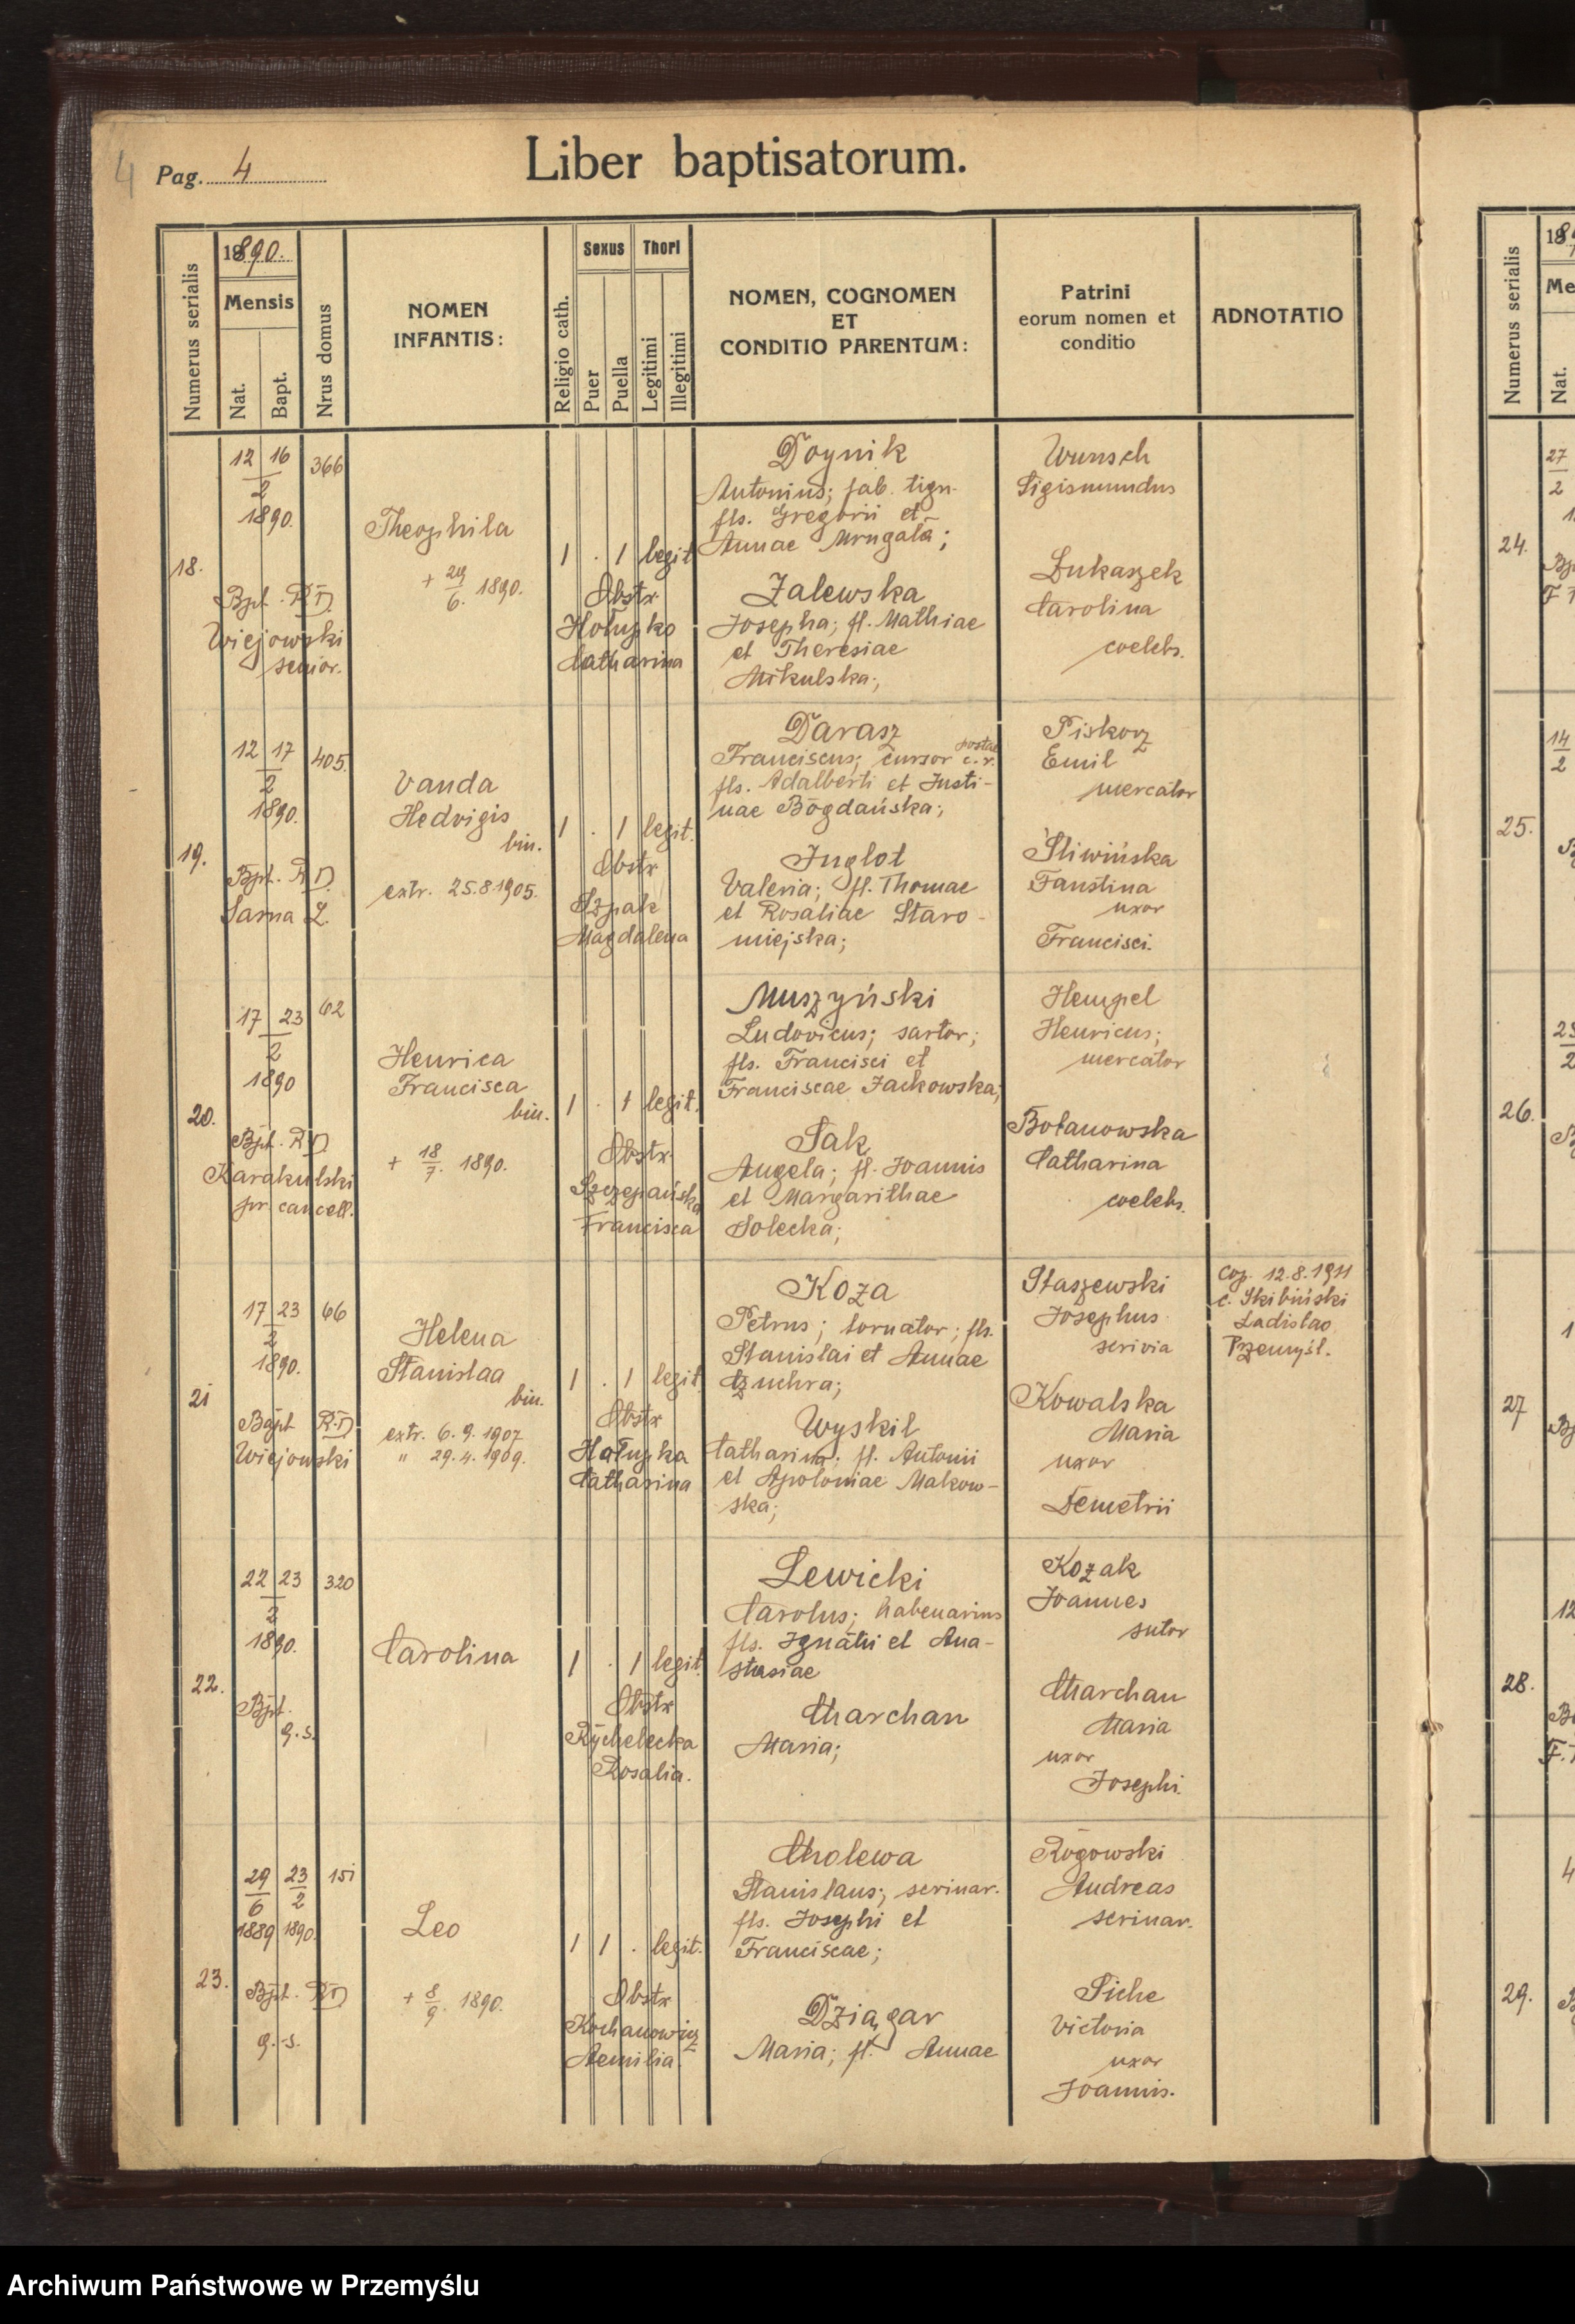 4 Pag. 4 Liber baptisatorum.
Numerus serialis
1890.
Mensis
Nat.
Bapt.
Nrus domus
NOMEN
INFANTIS:
Religio cath.
Sexus
Puer
Puella
Thori
Legitimi
Illegitimi
NOMEN, COGNOMEN
ET
CONDITIO PARENTUM:
Patrini
eorum nomen et
conditio
ADNOTATIO
18.
12 16 366
2
1890.
Bpt. RD.
Wiejowski
senior.
Theophila
+ 29/6. 1890.
1 . 1 legit
Obstr
Hołupko
Catharina
Doynik
Antonius; fab. lign.
fls. Gregorii et
Annae Mrugała;
Zalewska
Josepha; fl. Mathiae
et Theresiae
Mikulska;
Wunsch
Sigismundus
Łukaszek
Carolina
coelebs.
19.
12 17 405.
2
1890.
Bpt. RD.
Sarna L.
Vanda
Hedvigis
bin.
extr. 25.8.1905.
1 . 1 legit.
Obstr
Szpak
Magdalena
Darasz
postae
Franciscus; cursor c.r.
fls. Adalberti et Justi-
nae Bogdańska;
Inglot
Valeria; fl. Thomae
et Rosaliae Staro-
miejska;
Piskorz
Emil
mercator
Śliwińska
Faustina
uxor
Francisci.
20.
17 23 62
2
1890
Bpt. RD
Karakulski
pr. cancell.
Henrica
Francisca
bin.
+ 18/7. 1890.
1 . 1 legit.
Obstr.
Szczepańska
Francisca
Muszyński
Ludovicus; sartor;
fls. Francisci et
Franciscae Jackowska;
Sak
Angela; fl. Joannis
et Margarithae
Solecka;
Hempel
Henricus;
mercator
Bołanowska
Catharina
coelebs.
21
17 23 66
2
1890.
Bapt RD
Wiejowski
Helena
Stanislaa
bin.
extr. 6.9.1907
" 29.4.1909.
1 . 1 legit.
Obstr
Hałupka
Catharina
Koza
Petrus; tornator; fls.
Stanislai et Annae
Czuchra;
Wyskil
Catharina; fl. Antonii
et Apoloniae Makow-
ska;
Staszewski
Josephus
scrivia
Kowalska
Maria
uxor
Demetrii
Cop. 12.8.1911
c. Skibiński
Ladislao
Przemyśl.
22.
22 23 320
2
1890.
Bpt.
q.s.
Carolina
1 . 1 legit.
Obstr
Rychelecka
Rosalia.
Lewicki
Carolus; habenarius
fls. Ignatii et Ana-
stasiae
Charchan
Maria;
Kozak
Joannes
sutor
Charchan
Maria
uxor
Josephi.
23.
29 23 151
6 2
1889 1890.
Bpt. RD
q.s.
Leo
+ 8/9. 1890.
1 1 . legit.
Obstr
Kochanowicz
Aemilia
Cholewa
Stanislaus; scrinar.
fls. Josephi et
Franciscae;
Dziągar
Maria; fl. Annae
Rogowski
Andreas
scrinar.
Siche
Victoria
uxor
Joannis.
Numerus serialis
Nat.
27
2
24.
14
2
25.
26.
27
28.
29.
Archiwum Państwowe w Przemyślu